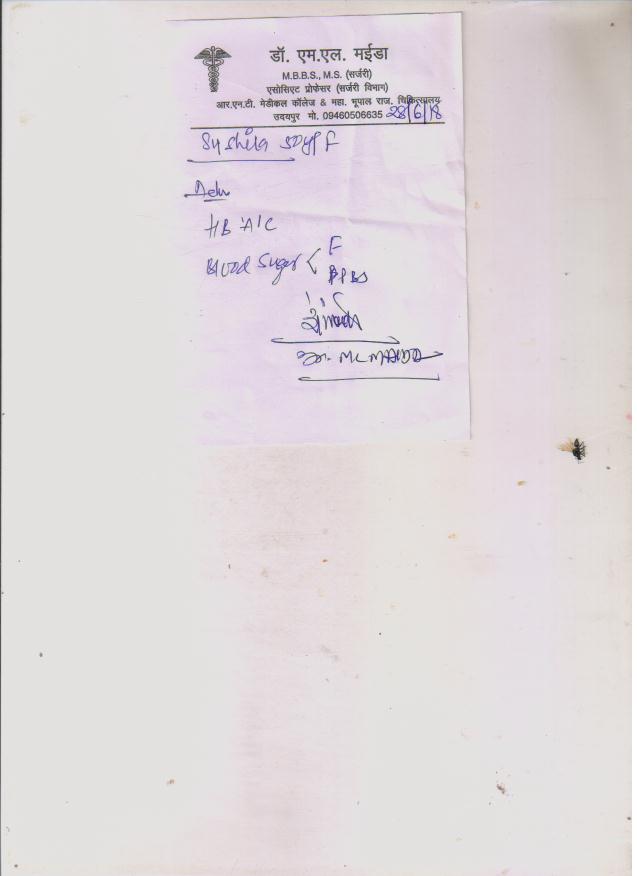 डॉ. एम.एल. मईडा
M.B.B.S., M.S. (सर्जरी)
एसोसिएट प्रोफेसर (सर्जरी विभाग)
आर.एन.टी. मेडीकल कॉलेज & महा. भूपाल राज. चिकित्सालय
उदयपुर मो. 09460506635 28/6/18
Sushila 50y/F
Adv
HB A1C
Blood Sugar < F
PPBS
Dr. ML MAIDA